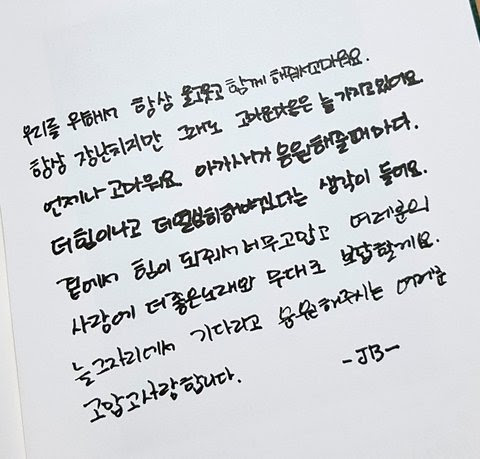 우리를 위해서 항상 울고웃고 함께 해줘서고마워요.
항상 장난치지만 그래도 고마운마음은 늘 가지고있어요
언제나 고마워요 아가새가 응원해줄때마다.
더힘이나고 더열심히해야겠다는 생각이 들어요.
곁에서 힘이 되줘서너무고맙고 여러분의
사랑에 더좋은노래와 무대로 보답할게요.
늘그자리에서 기다리고 응원해주시는 여러분
고맙고사랑합니다.
-JB-